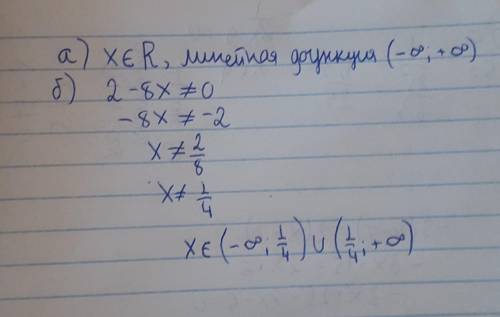 а) x∈R, линейная функция (-∞; +∞)
б) 2-8x≠0
-8x≠-2
x≠2/8
x≠1/4
x∈(-∞; 1/4)∪(1/4; +∞)